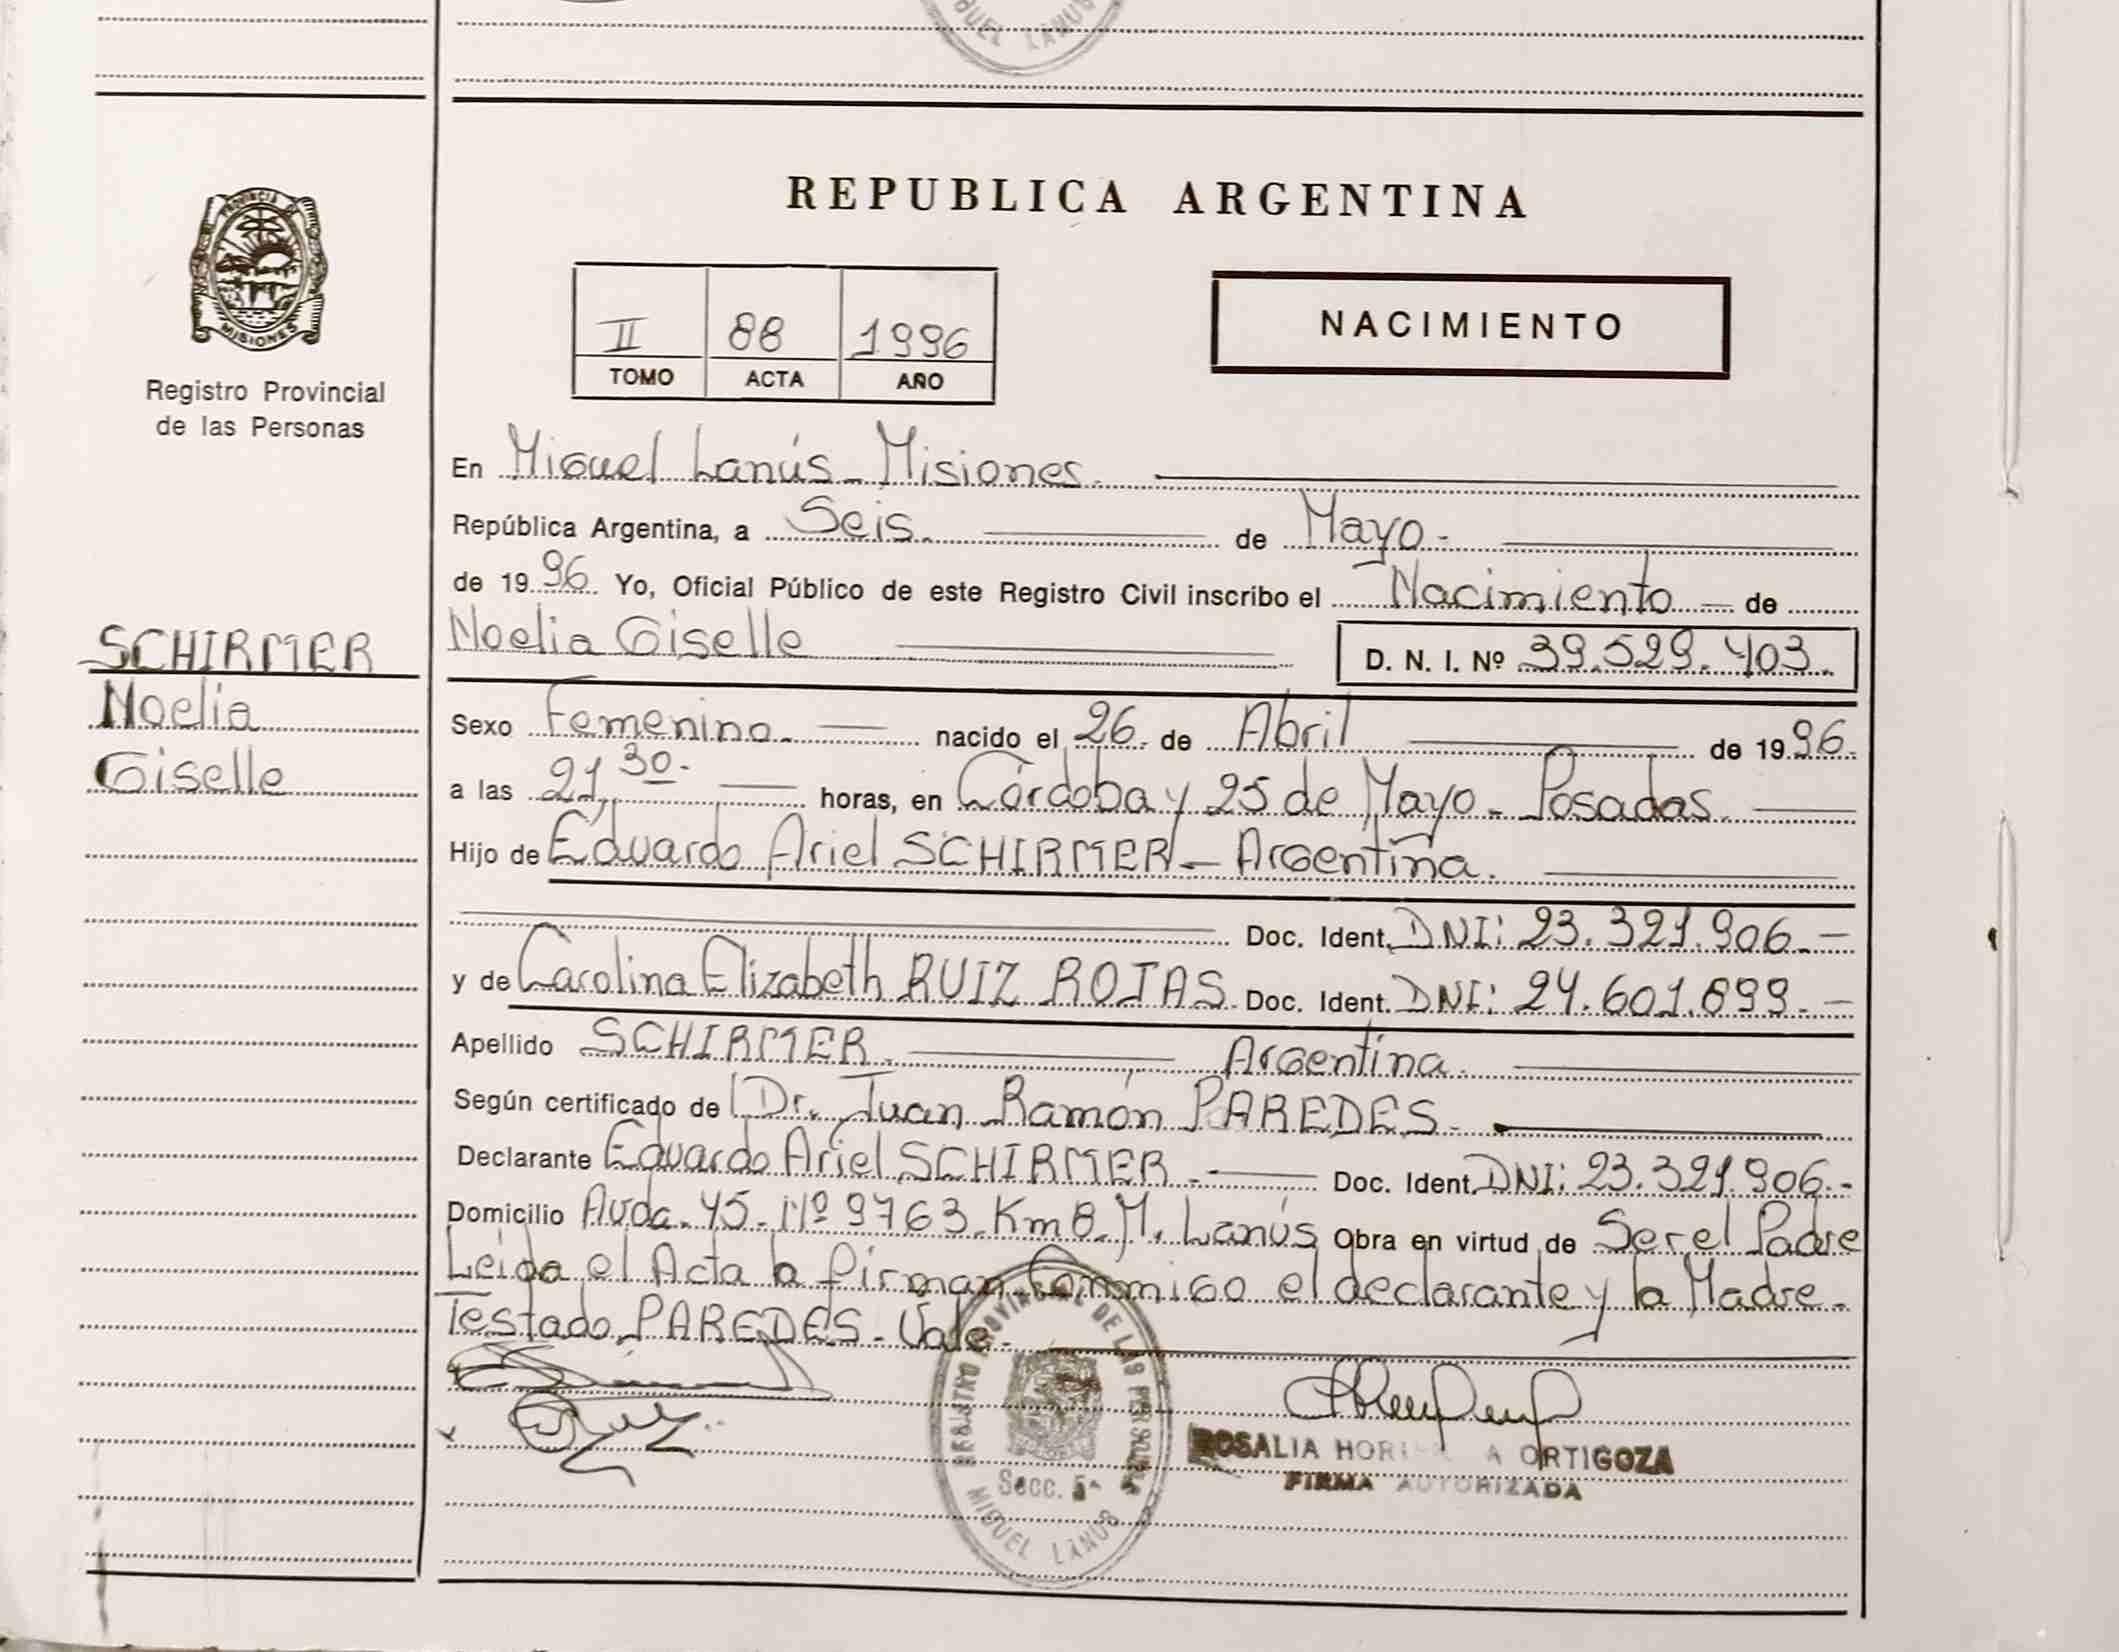 MIGUEL LANUS
REPUBLICA ARGENTINA
PROVINCIA DE
MISIONES
Registro Provincial
de las Personas
II 88 1996
TOMO ACTA AÑO
NACIMIENTO
En Miguel Lanús - Misiones.
República Argentina, a Seis. de Mayo.
de 1996 Yo, Oficial Público de este Registro Civil inscribo el Nacimiento de
Noelia Giselle D. N. I. Nº 39.529.403.
SCHIRMER
Noelia
Giselle
Sexo Femenino. nacido el 26 de Abril de 1996.
a las 21,30. horas, en Córdoba y 25 de Mayo - Posadas.
Hijo de Eduardo Ariel SCHIRMER - Argentina.
Doc. Ident. DNI: 23.321.906.-
y de Carolina Elizabeth RUIZ ROJAS. Doc. Ident. DNI: 24.601.899.-
Apellido SCHIRMER. Argentina.
Según certificado de Dr. Juan Ramón PAREDES.
Declarante Eduardo Ariel SCHIRMER. Doc. Ident. DNI: 23.321.906.-
Domicilio Avda. 45 - Nº 9763 - Km 8. M. Lanús Obra en virtud de Ser el Padre
Leida el Acta la firman Conmigo el declarante y la Madre.
Testado PAREDES - Vale.
REGISTRO PROVINCIAL DE LAS PERSONAS
Secc. 5ª
MIGUEL LANUS
ROSALIA ORTIGOZA
FIRMA AUTORIZADA